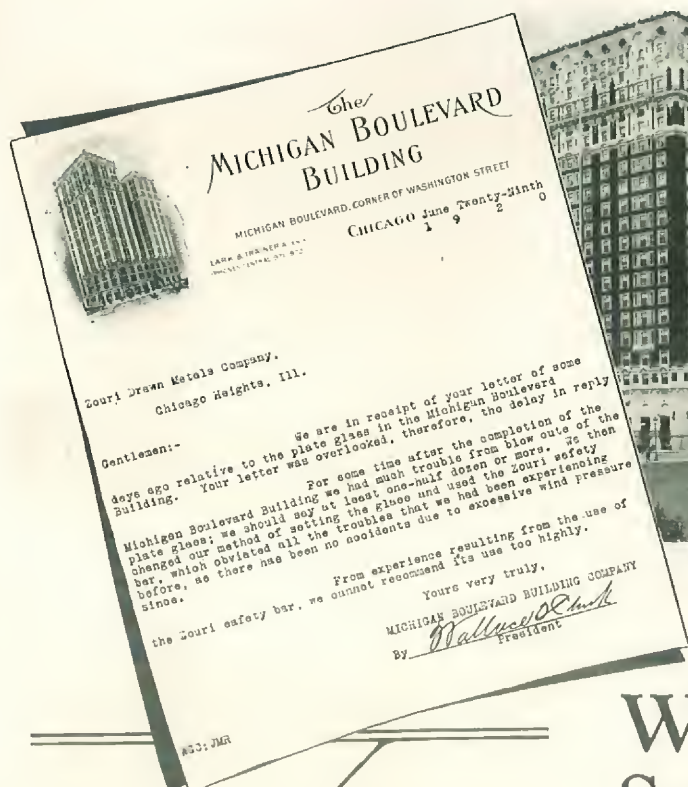 The
MICHIGAN BOULEVARD
BUILDING
MICHIGAN BOULEVARD, CORNER OF WASHINGTON STREET
CHICAGO June Twenty-Ninth
1 9 2 0
Zouri Drawn Metals Company,
Chicago Heights, Ill.
Gentlemen:-
We are in receipt of your letter of some
days ago relative to the plate glass in the Michigan Boulevard
Building. Your letter was overlooked, therefore, the delay in reply
For some time after the completion of the
Michigan Boulevard Building we had much trouble from blow outs of the
plate glass; we should say at least one-half dozen or more. We then
changed our method of setting the glass and used the Zouri safety
bar, which obviated all the troubles that we had been experiencing
before, as there has been no accidents due to excessive wind pressure
since.
From experience resulting from the use of
the Zouri safety bar, we cannot recommend its use too highly.
Yours very truly,
MICHIGAN BOULEVARD BUILDING COMPANY
By Wallace Clark
President
JMR
W
S